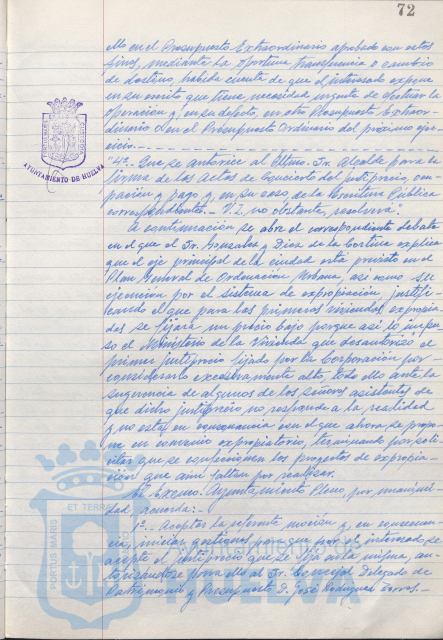 72
ello en el Presupuesto Extraordinario aprobado con estos
fines, mediante la oportuna transferencia o cambio
de destino, habida cuenta de que el interesado expone
en su escrito que tiene necesidad urgente de efectuar la
operación y, en su defecto, en otro Presupuesto Extraor-
dinario o en el Presupuesto Ordinario del próximo ejer-
cicio.-
"4º.- Que se autorice al Iltmo. Sr. Alcalde para la
firma de las Actas de Concierto del justiprecio, ocu-
pación y pago y, en su caso, de la Escritura Pública
correspondiente.- V.I., no obstante, resolverá."
A continuación se abre el correspondiente debate
en el que el Sr. González y Díaz de la Cortina explica
que el eje principal de la ciudad está previsto en el
Plan General de Ordenación Urbana, así como su
ejecución por el sistema de expropiación justifi-
cando el que para las primeras viviendas expropia-
das se fijara un precio bajo porque así lo impu-
so el Ministerio de la Vivienda que desautorizó el
primer justiprecio fijado por la Corporación por
considerarlo excesivamente alto, todo ello ante la
sugerencia de algunos de los señores asistentes de
que dicho justiprecio no responde a la realidad
y no está en consonancia con el que ahora se propo-
ne en convenio expropiatorio, terminando por soli-
citar que se confeccionen los proyectos de expropia-
ción que aún faltan por realizar.
El Excmo. Ayuntamiento Pleno, por unanimi-
dad, acuerda:-
1º.- Aceptar la referente moción y, en consecuen-
cia, iniciar gestiones para que por el interesado se
acepte el justiprecio que se fija en la misma, au-
torizándose para ello al Sr. Concejal Delegado de
Patrimonio y Presupuesto D. José Rodríguez
AYUNTAMIENTO DE HUELVA
PORTUS MARIS ET TERRAE
Ayuntamiento de
HUELVA